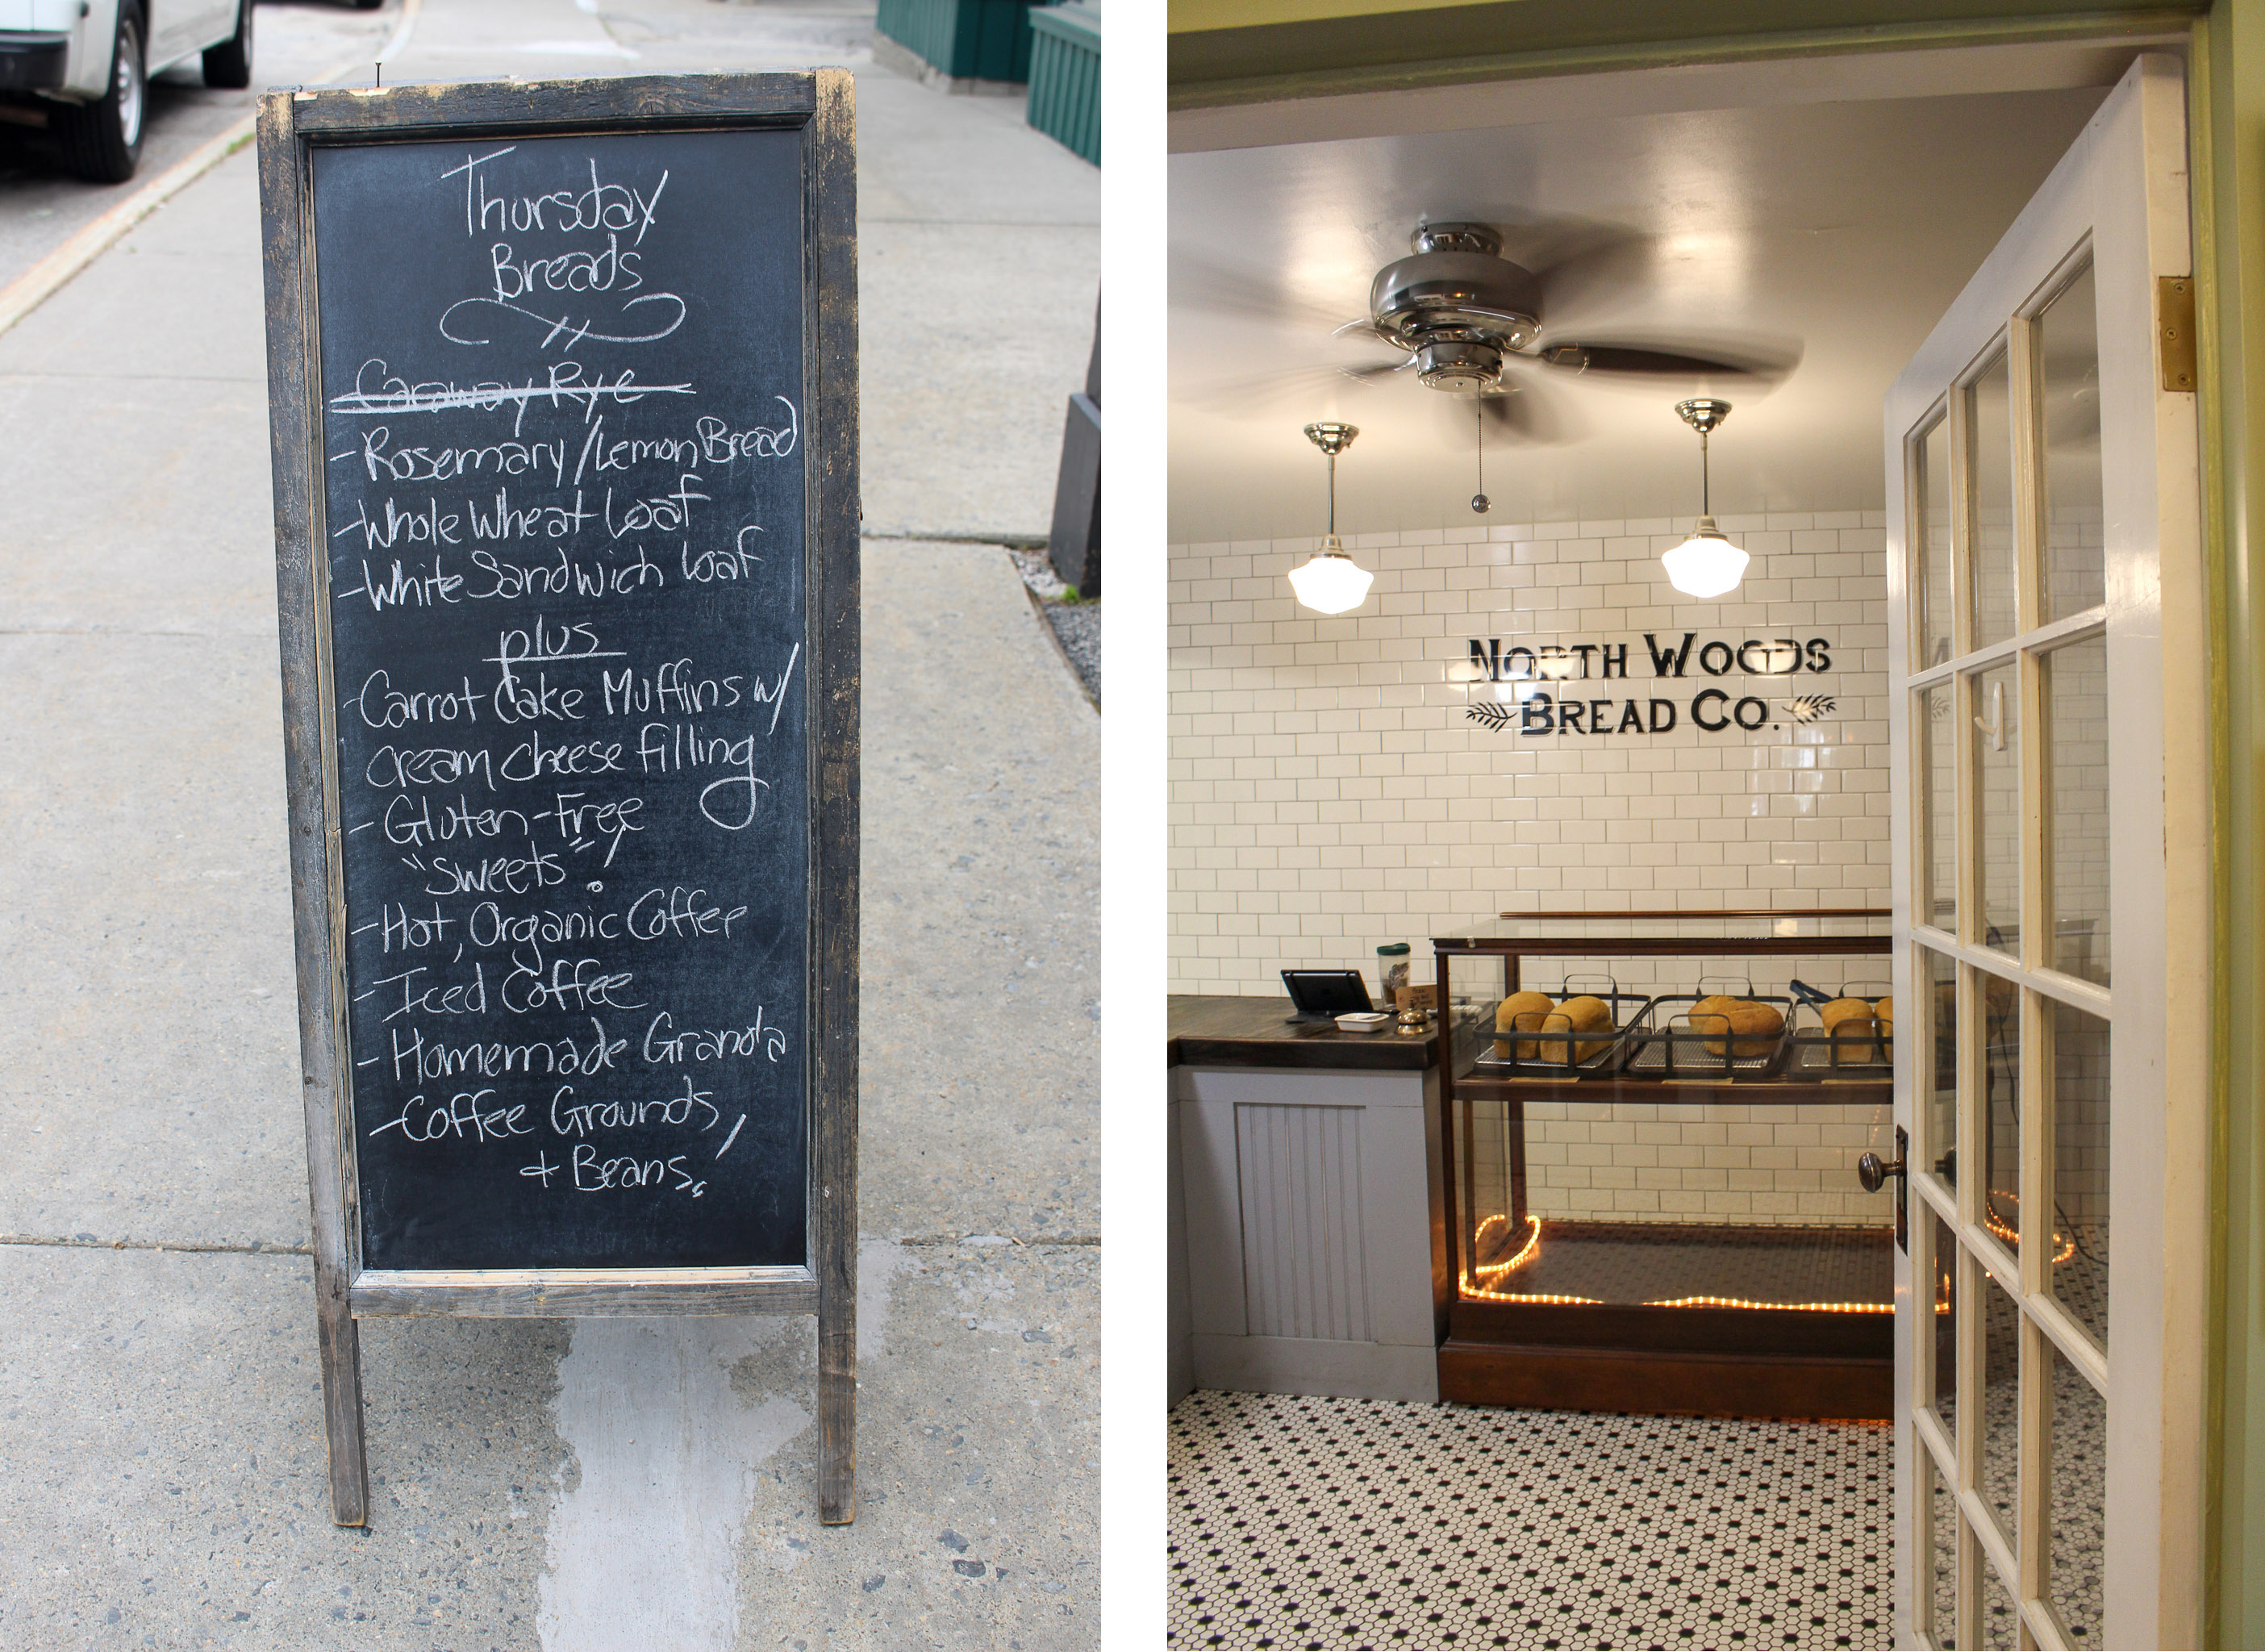 Thursday
Breads
Caraway Rye
- Rosemary/Lemon Bread
- Whole Wheat Loaf
- White Sandwich Loaf
plus
- Carrot Cake Muffins w/
cream cheese filling
- Gluten-Free
"Sweets"!
- Hot, Organic Coffee
- Iced Coffee
- Homemade Granola
- Coffee Grounds,
+ Beans!
NORTH WOODS
BREAD CO.